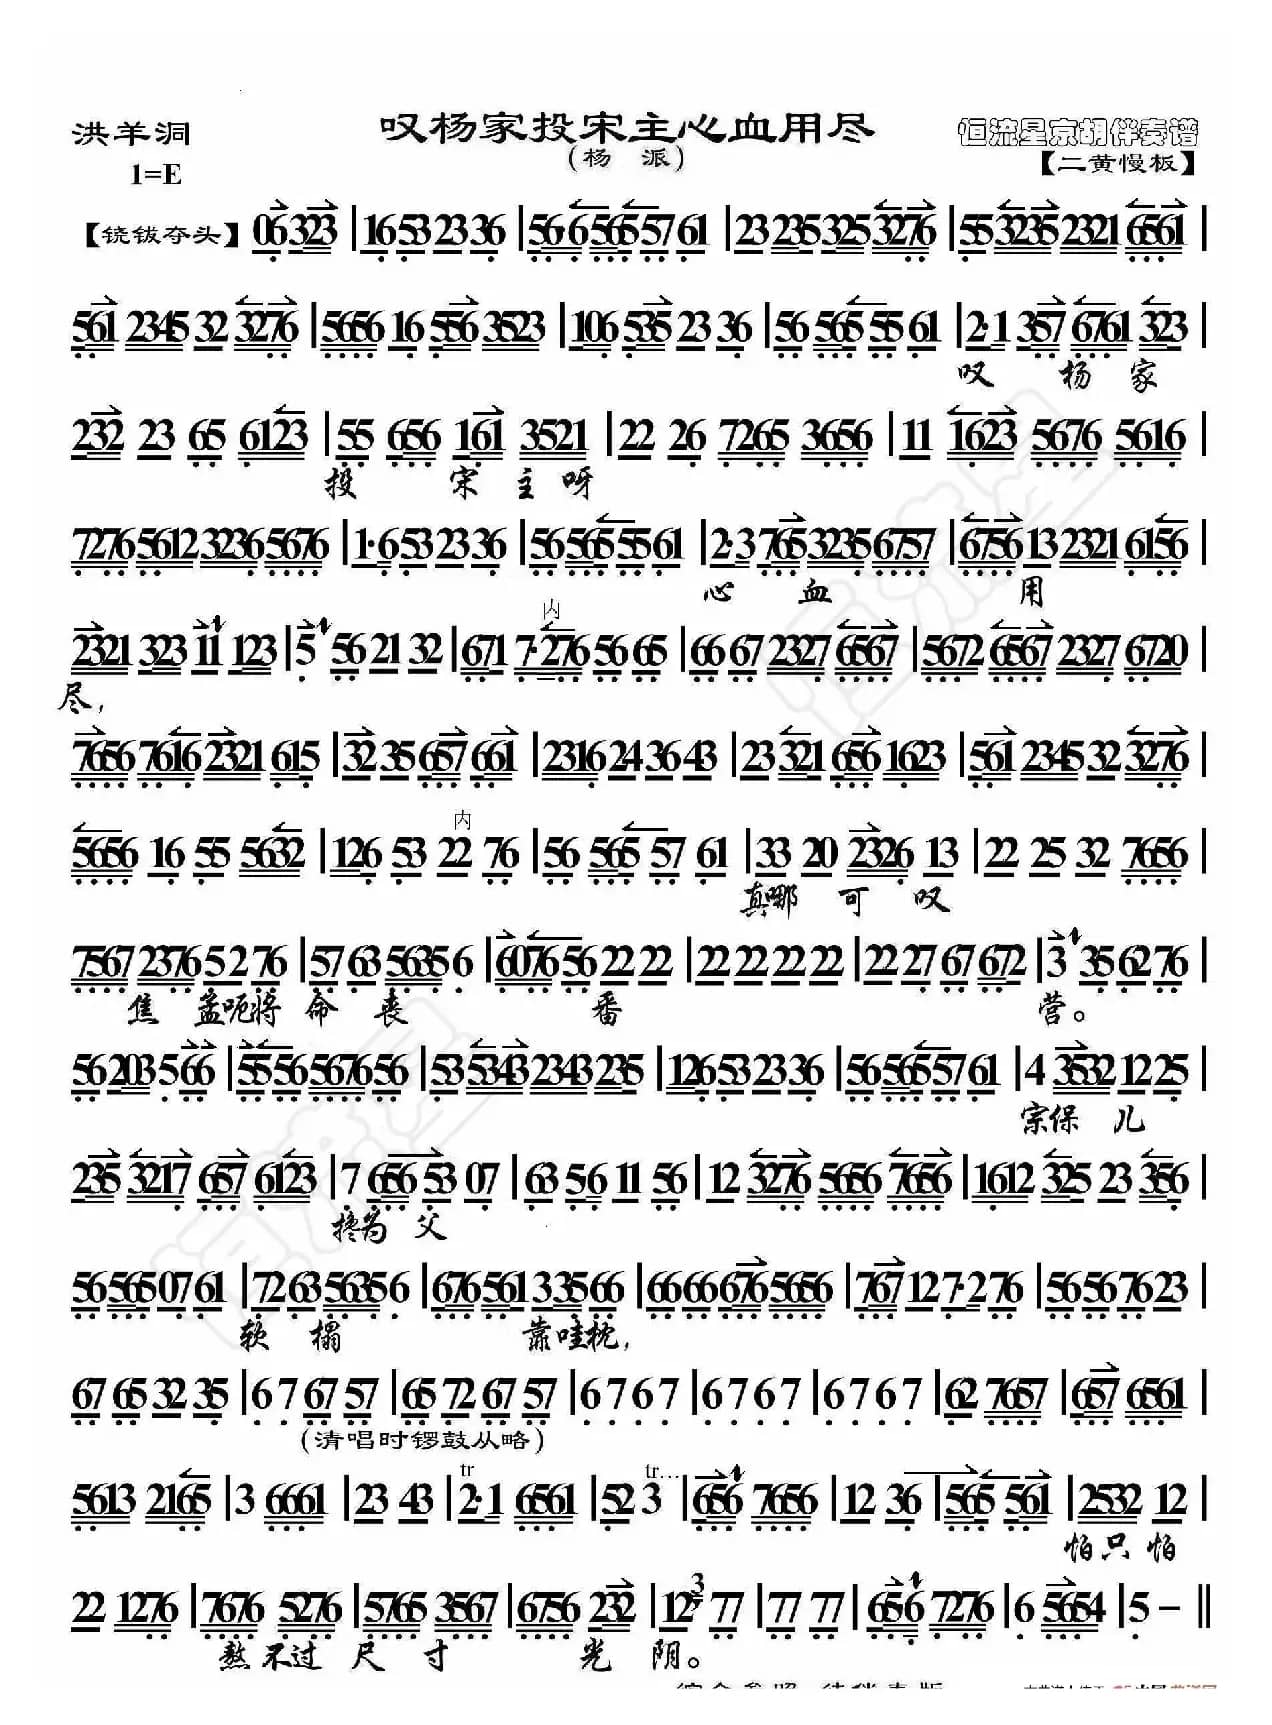 叹杨家投宋主心血用尽
洪羊洞
恒流星京胡伴奏谱
(杨 派)
1=E
【二黄慢板】
【铙钹夺头】 06 323 | 16 53 23 36 | 56·6 565 57 61 | 23 235 325 3276 | 55 3235 2321 6561 |
561 2345 32 3276 | 5656 16 556 3523 | 106 535 23 36 | 56 565 55 61 | 2·1 357 6761 323 |
叹 杨 家
232 23 65 6123 | 55 656 161 3521 | 22 26 7265 3656 | 11 1623 5676 5616 |
投 宋 主 呀
7276 5612 3236 5676 | 1·6 53 23 36 | 56 565 55 61 | 2·3 765 3235 6757 | 6756 13 2321 6156 |
心 血 用
内
2321 323 11 123 | 5 56 21 32 | 671 7·276 56 65 | 66 67 2327 6567 | 5672 6567 2327 6720 |
尽，
7656 7616 2321 615 | 32 35 657 661 | 2316 24 36 43 | 23 321 656 1623 | 561 2345 32 3276 |
内
5656 16 55 5632 | 126 53 22 76 | 56 565 57 61 | 33 20 2326 13 | 22 25 32 7656 |
真哪 可 叹
7567 2376 5 2 76 | 57 63 5635 6 | 6076 56 22 22 | 22 22 22 22 | 22 27 67 672 | 3 35 62 76 |
焦 孟呃将 命 丧 番 营。
56 203 5 66 | 55 56 5676 56 | 53 5343 2343 235 | 126 53 23 36 | 56 565 57 61 | 4 3532 12 25 |
宗保 儿
235 3217 657 6123 | 7 656 53 07 | 63 5·6 11 56 | 12 3276 5656 7656 | 1612 325 23 356 |
搀为 父
56 565 07 61 | 72 63 5635 6 | 676 561 335 66 | 66 66 676 5656 | 767 12 7·2 76 | 56 56 76 23 |
软 榻 靠哇枕，
67 65 32 35 | 6 7 67 57 | 65 72 67 57 | 6 7 6 7 | 6 7 6 7 | 6 7 6 7 | 62 7657 | 657 6561 |
(清唱时锣鼓从略)
tr tr…
5613 2165 | 3 6661 | 23 43 | 2·1 6561 | 52 3 | 656 7656 | 12 36 | 565 561 | 2532 12 |
怕只 怕
3
22 1276 | 7676 5276 | 5765 3567 | 6756 232 | 12 77 | 77 77 | 656 7276 | 6 5654 | 5 - ‖
熬 不过 尺 寸 光 阴。